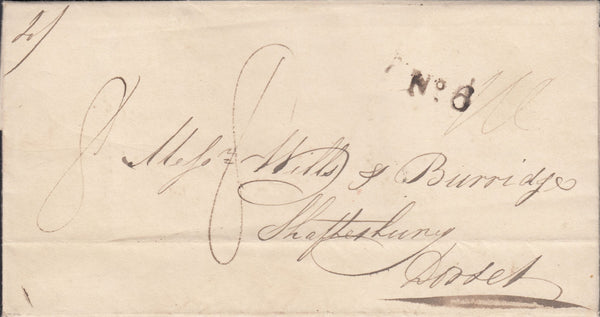 No. 6
8 8
Messrs. Wills & Burridge
Shaftesbury
Dorset